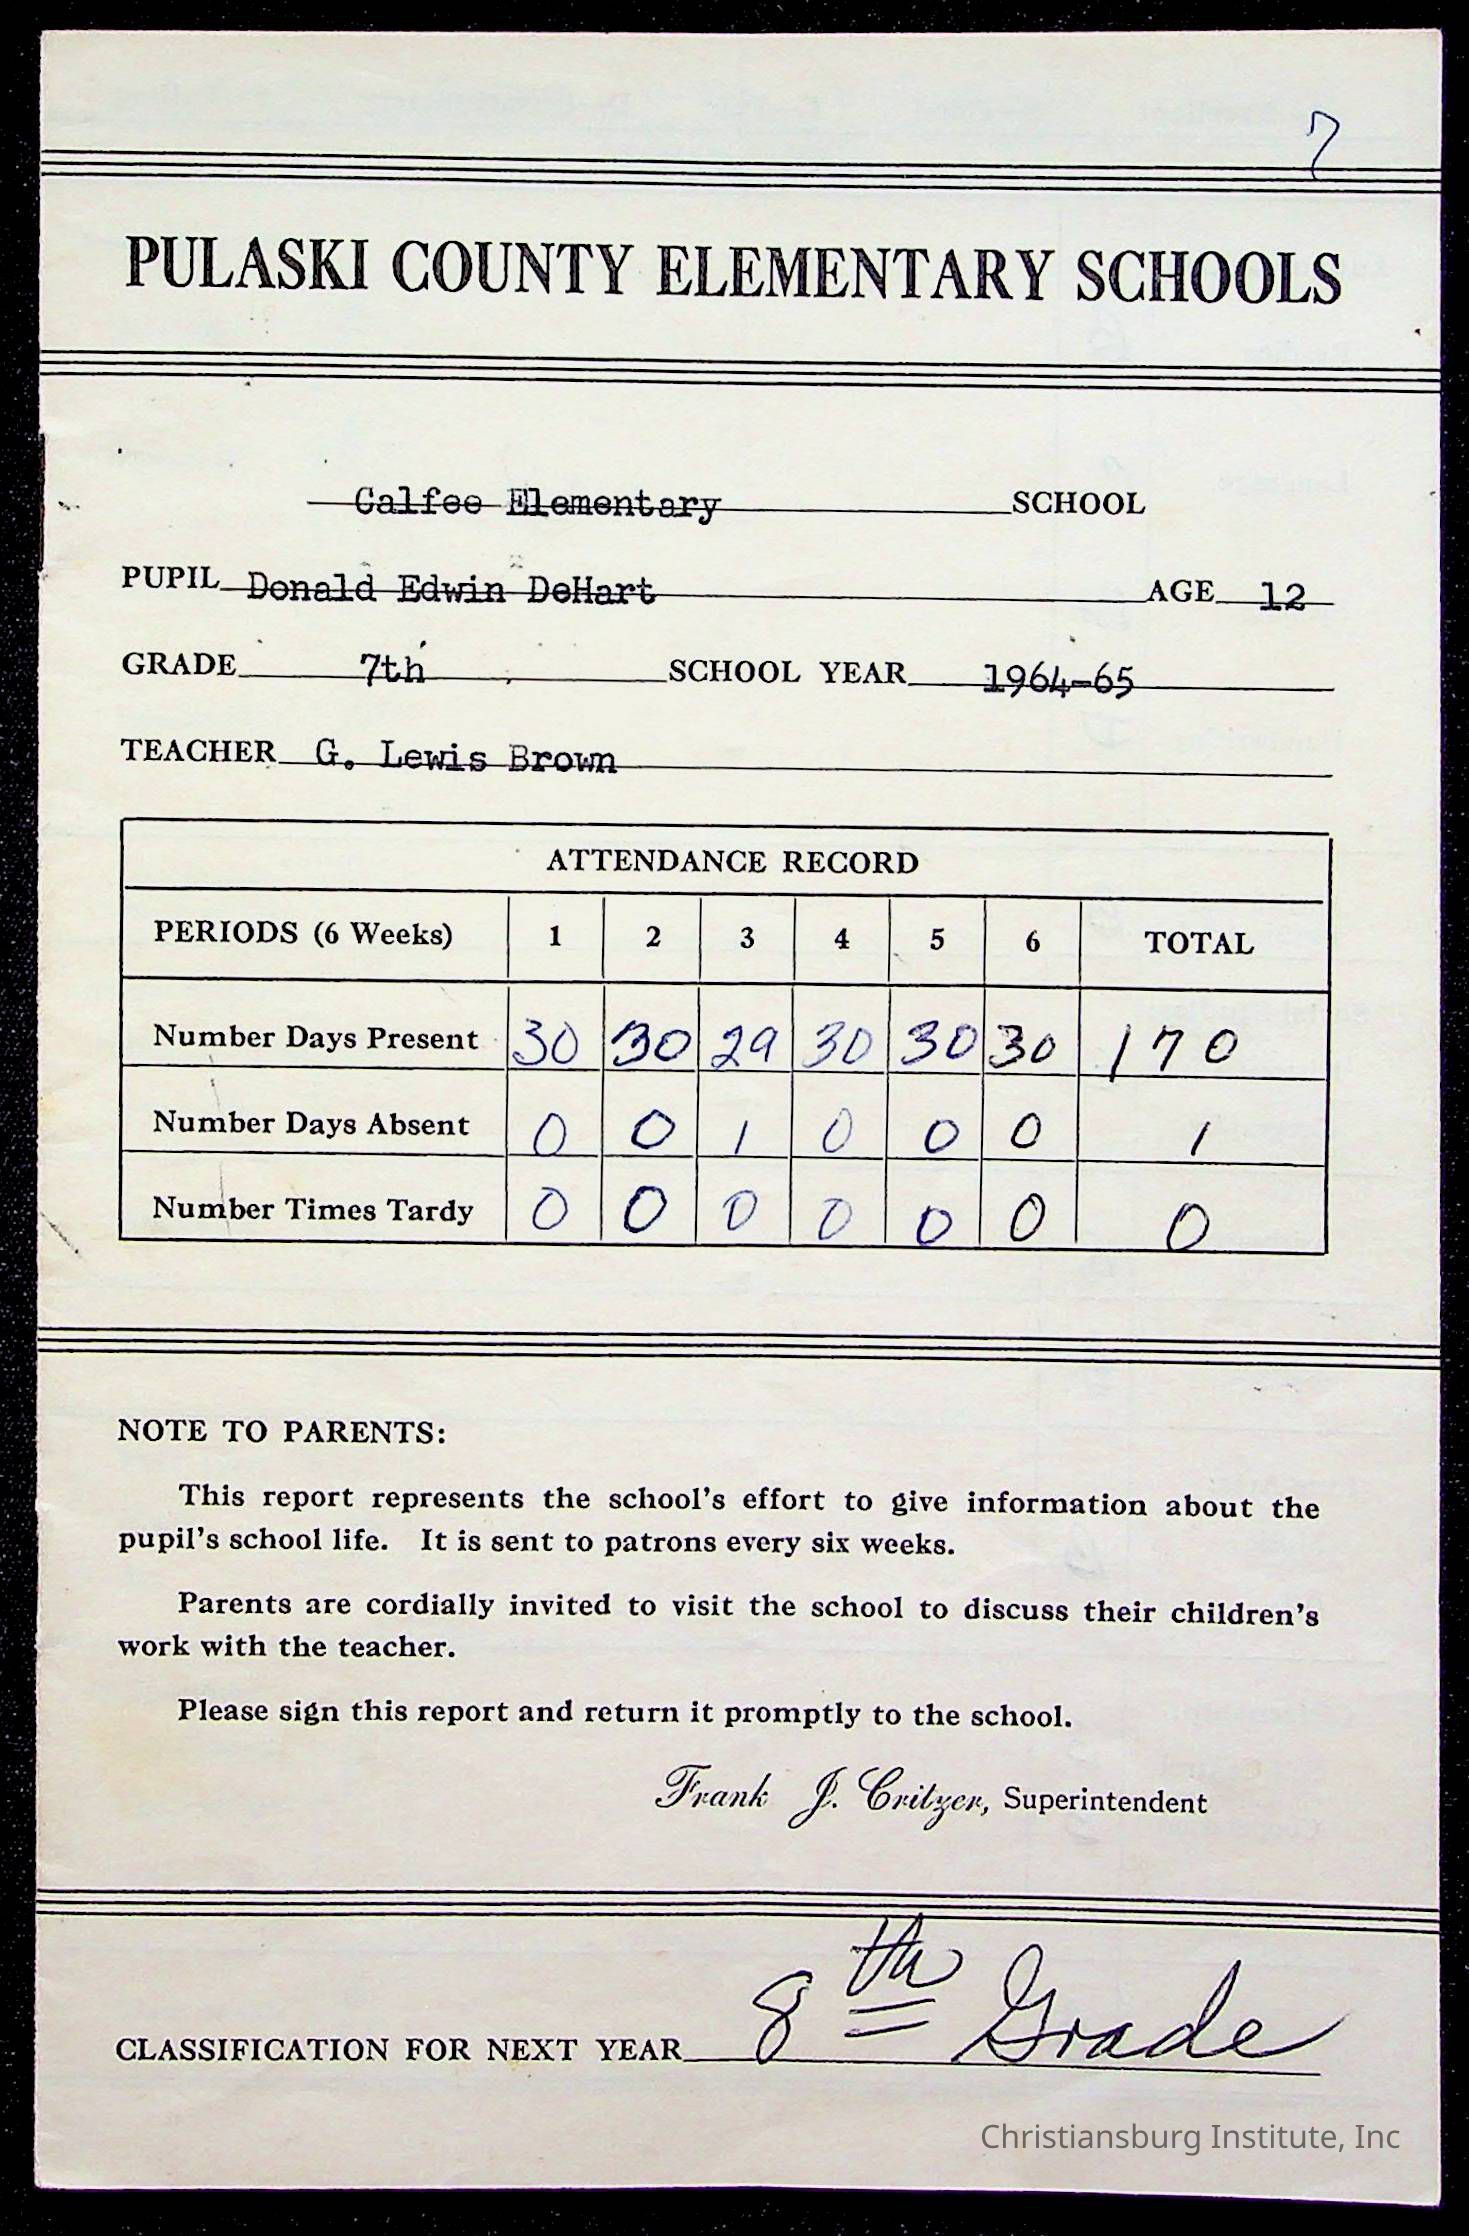 7
PULASKI COUNTY ELEMENTARY SCHOOLS
Calfee Elementary SCHOOL
PUPIL Donald Edwin DeHart AGE 12
GRADE 7th SCHOOL YEAR 1964-65
TEACHER G. Lewis Brown
ATTENDANCE RECORD
PERIODS (6 Weeks) 1 2 3 4 5 6 TOTAL
Number Days Present 30 30 29 30 30 30 170
Number Days Absent 0 0 1 0 0 0 1
Number Times Tardy 0 0 0 0 0 0 0
NOTE TO PARENTS:
This report represents the school's effort to give information about the
pupil's school life. It is sent to patrons every six weeks.
Parents are cordially invited to visit the school to discuss their children's
work with the teacher.
Please sign this report and return it promptly to the school.
Frank J. Critzer, Superintendent
CLASSIFICATION FOR NEXT YEAR 8th Grade
Christiansburg Institute, Inc